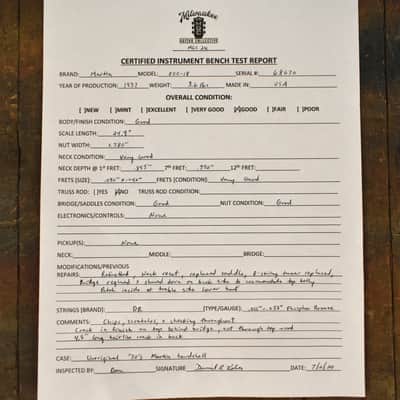 Milwaukee
GUITAR COLLECTIVE
CERTIFIED INSTRUMENT BENCH TEST REPORT
BRAND: Martin MODEL: 00C-18 SERIAL#: 68670
YEAR OF PRODUCTION: 1937 WEIGHT: 3.6 lbs MADE IN: USA
OVERALL CONDITION:
[ ]NEW [ ]MINT [ ]EXCELLENT [ ]VERY GOOD [X]GOOD [ ]FAIR [ ]POOR
BODY/FINISH CONDITION: Good
SCALE LENGTH: 24.9"
NUT WIDTH: 1.780"
NECK CONDITION: Very Good
NECK DEPTH @ 1st FRET: .895" 7th FRET: .990" 12th FRET:
FRETS (SIZE) FRETS (CONDITION) Very Good
TRUSS ROD: [ ]YES [X]NO TRUSS ROD CONDITION:
BRIDGE/SADDLES CONDITION: Good NUT CONDITION: Good
ELECTRONICS/CONTROLS: None
PICKUP(S): None
NECK: MIDDLE: BRIDGE:
MODIFICATIONS/PREVIOUS
REPAIRS: Refretted, Neck reset, replaced saddle, B-string tuner replaced,
Bridge reglued & shaved down on back side to accommodate top belly
Patch inside at treble side lower bout
STRINGS (BRAND): DR (TYPE/GAUGE) Phosphor Bronze
COMMENTS: Chips, scratches, & checking throughout
Crack in finish on top behind bridge, not through top wood
4.5" long hairline crack in back
CASE: Unoriginal '70's Martin hardshell
INSPECTED BY: SIGNATURE DATE: